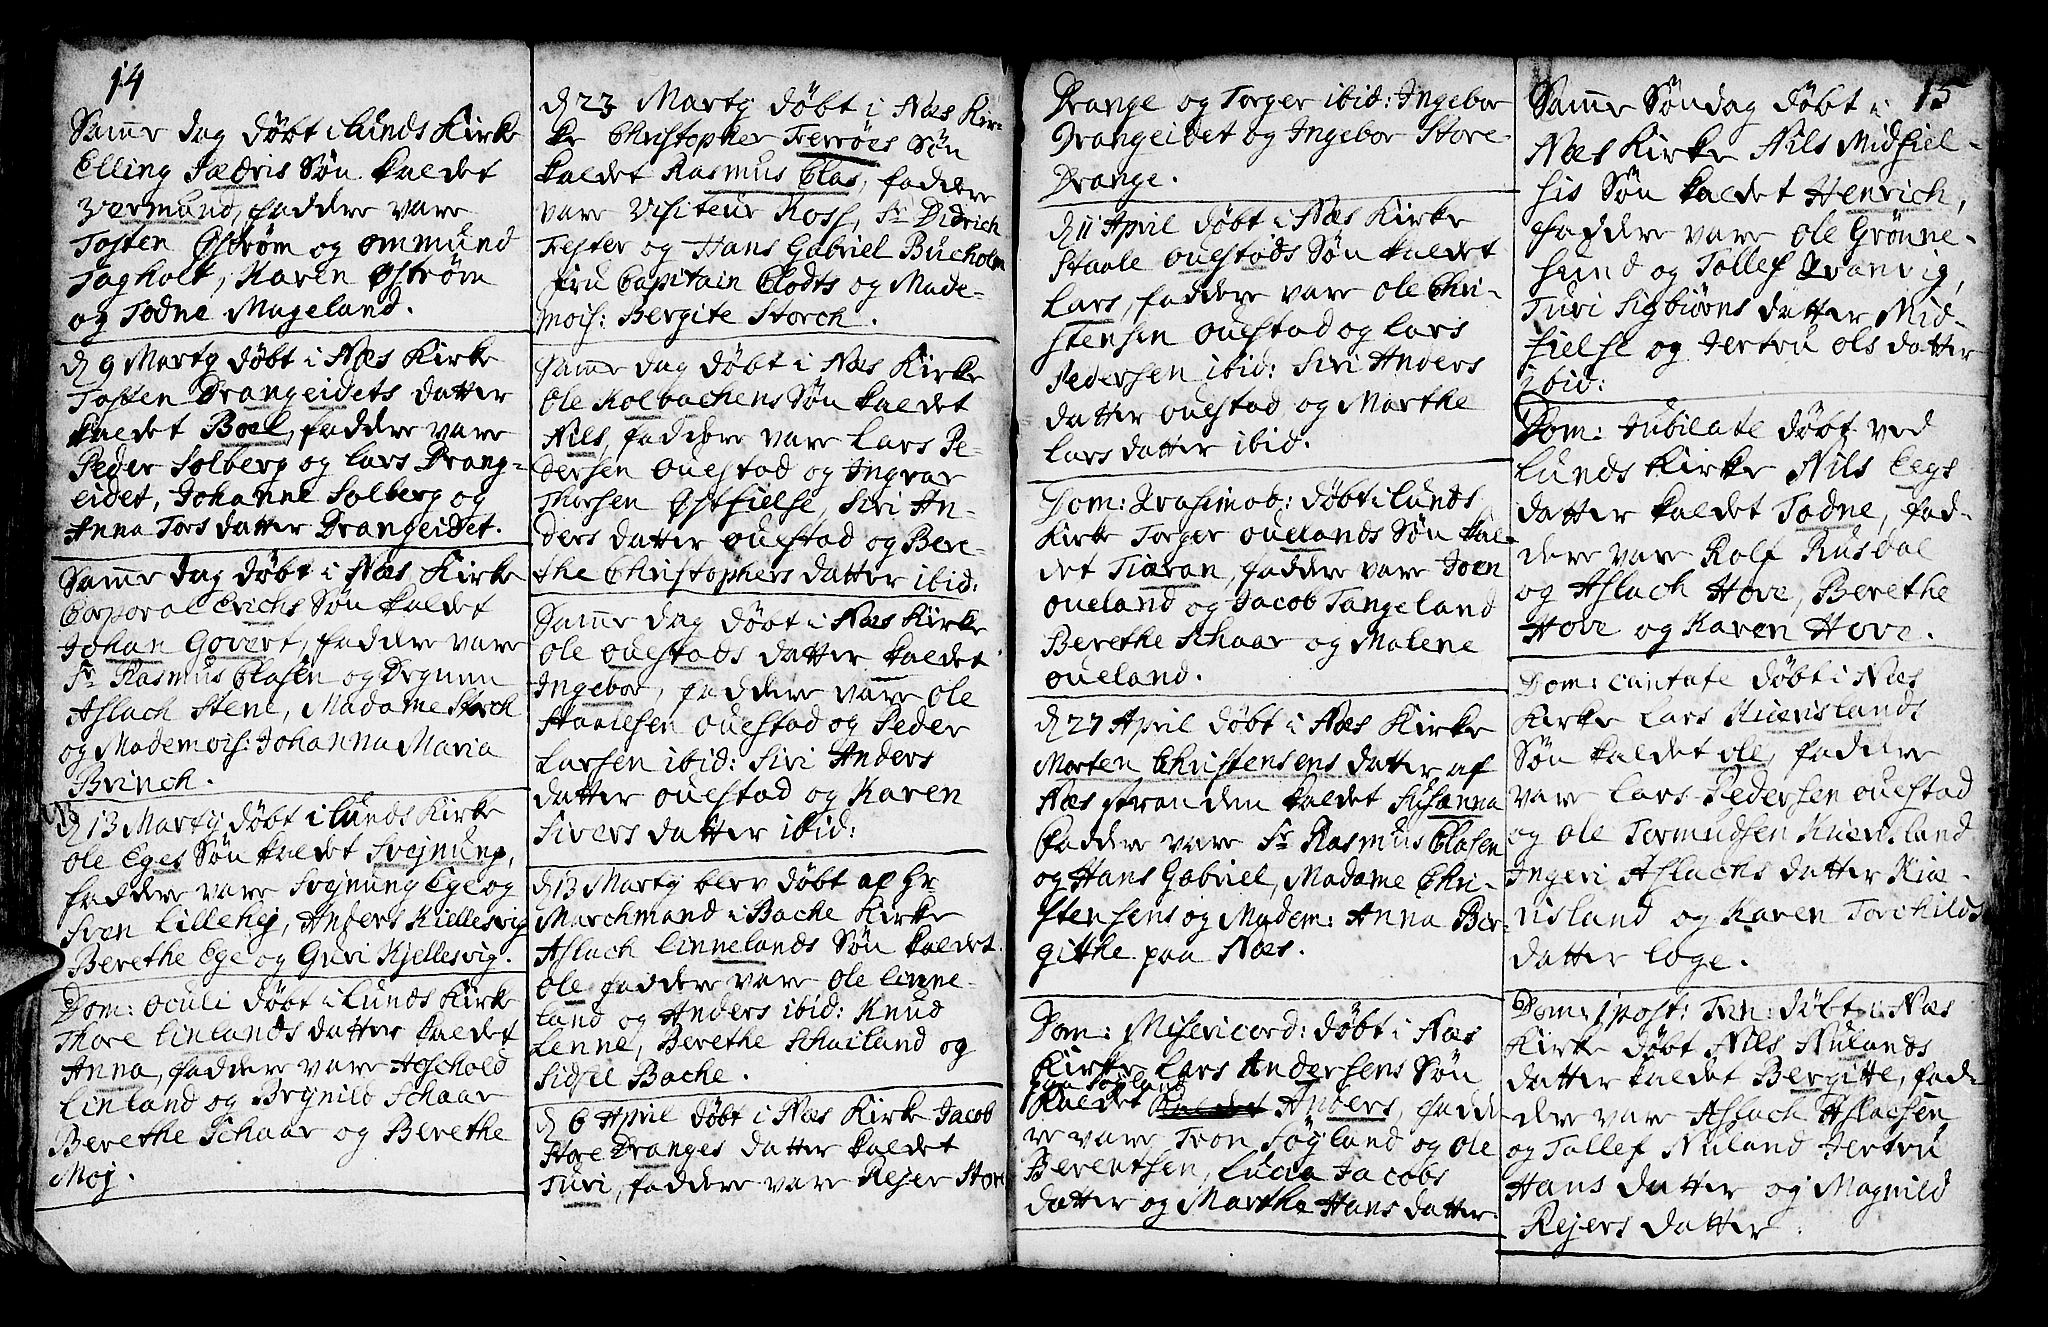 14
Samme dag döbt i Lunds Kirke
Elling Sædris Sön kaldet
Vermund, faddere vare
Tosten Oström og Ommund
Tagholt, Karen Oström
og Todne Mageland.
d 9 Martij döbt i Næs Kirke
Tosten Drangeidets datter
kaldet Boel, faddere vare
Peder Solberg og Lars Drang-
eidet, Johanne Solberg og
Anna Tors datter Drangeidet.
Samme dag döbt i Næs Kirke
Corporal Erichs Sön kaldet
Johan Govert, faddere vare
Sr Rasmus Clasen og Degnen
Aslach Stene, Madame Storch
og Mademois: Johanna Maria
Brinch.
d 13 Martij döbt i Lunds Kirke
Ole Eges Sön kaldet Svejnung,
faddere vare Svejnung Ege og
Sven Lillehej, Anders Kiellesvig
Berethe Ege og Guri Kjellesvig.
Dom: Oculi döbt i Lunds Kirke
Thore Linlands datter kaldet
Anna, faddere vare Aschold
Linland og Brynild Schaar
Berethe Schaar og Berethe
Moj.
d 23 Martij döbt i Næs Kir-
ke Christopher Ferröes Sön
kaldet Rasmus Clas, faddere
vare Visiteur Ross, Sr Didrich
Fester og Hans Gabriel Bucholm
Fru Capitain Clodts og Made-
mois: Bergite Storch.
Samme dag döbt i Næs Kirke
Ole Kolbachens Sön kaldet
Nils, faddere vare Lars Pe-
dersen Ouestad og Ingvar
Thorsen Östfielse, Siri An-
ders datter Ouestad og Bere-
the Christophers datter ibid:
Samme dag döbt i Næs Kirke
Ole Ouestads datter kaldet
Ingebor, faddere vare Ole
Staalesen Ouestad og Peder
Larsen ibid: Siri Anders
datter Ouestad og Karen
Sivers datter ibid:
d 13 Martij blev döbt af Hr
Marchmand i Bache Kirke
Aslach Linnelands Sön kaldet
Ole faddere vare Ole Linne-
land og Anders ibid: Knud
Lenne, Berethe Schailand og
Sidsel Bache.
d 6 April döbt i Næs Kirke Jacob
Store Dranges datter kaldet
Turi, faddere vare Rejer Store
Drange og Torger ibid: Ingebor
Drangeidet og Ingebor Store-
Drange.
d 11 April döbt i Næs Kirke
Staale Ouestads Sön kaldet
Lars, faddere vare Ole Chri-
stensen Ouestad og Lars
Pedersen ibid: Siri Anders
datter Ouestad og Marthe
Lars datter ibid.
Dom: Qvasimod: döbt i Lunds
Kirke Torger Ouelands Sön kal-
det Tiaran, faddere vare Joen
Oueland og Jacob Tangeland
Berethe Schaar og Malene
Oueland.
d 27 April döbt i Næs Kirke
Morten Christensens datter af
Næs stranden kaldet Susanna
faddere vare Sr Rasmus Clasen
og Hans Gabriel, Madame Chri-
stensens og Madem: Anna Ber-
githe paa Næs.
Dom: Misericord: döbt i Næs
Kirke Lars Andersens Sön
paa Söyland
kaldet Anders, fadde
re vare Tron Söyland og Ole
Berentsen, Lucia Jacobs
datter og Marthe Hans datter.
15
Samme Söndag döbt i
Næs Kirke Nils Midfiel-
sis Sön kaldet Henrich,
faddere vare Ole Grönne-
sund og Tollef Qvanvig,
Turi Sigbiörns datter Mid-
fielse og Jertru Ols datter
ibid:
Dom: Jubilate döbt ved
Lunds Kirke Nils Eegs
datter kaldet Todne, fad-
dere vare Rolf Rusdal
og Aslach Hove, Berethe
Hove og Karen Hove.
Dom: Cantate döbt i Næs
Kirke Lars Kuerislands
Sön kaldet Ole, faddere
vare Lars Pedersen Ouestad
og Ole Tormudsen Kuerisland
Ingeri Aslachs datter Kiæ-
risland og Karen Torchilds
datter Loge.
Dom: 1 post: Trin: döbt i Næs
Kirke döbt Nils Nulands
datter kaldet Bergitte, fad-
dere vare Aslach Aslacsen
og Tollef Nuland Jertru
Hans datter og Magnild
Rejers datter.